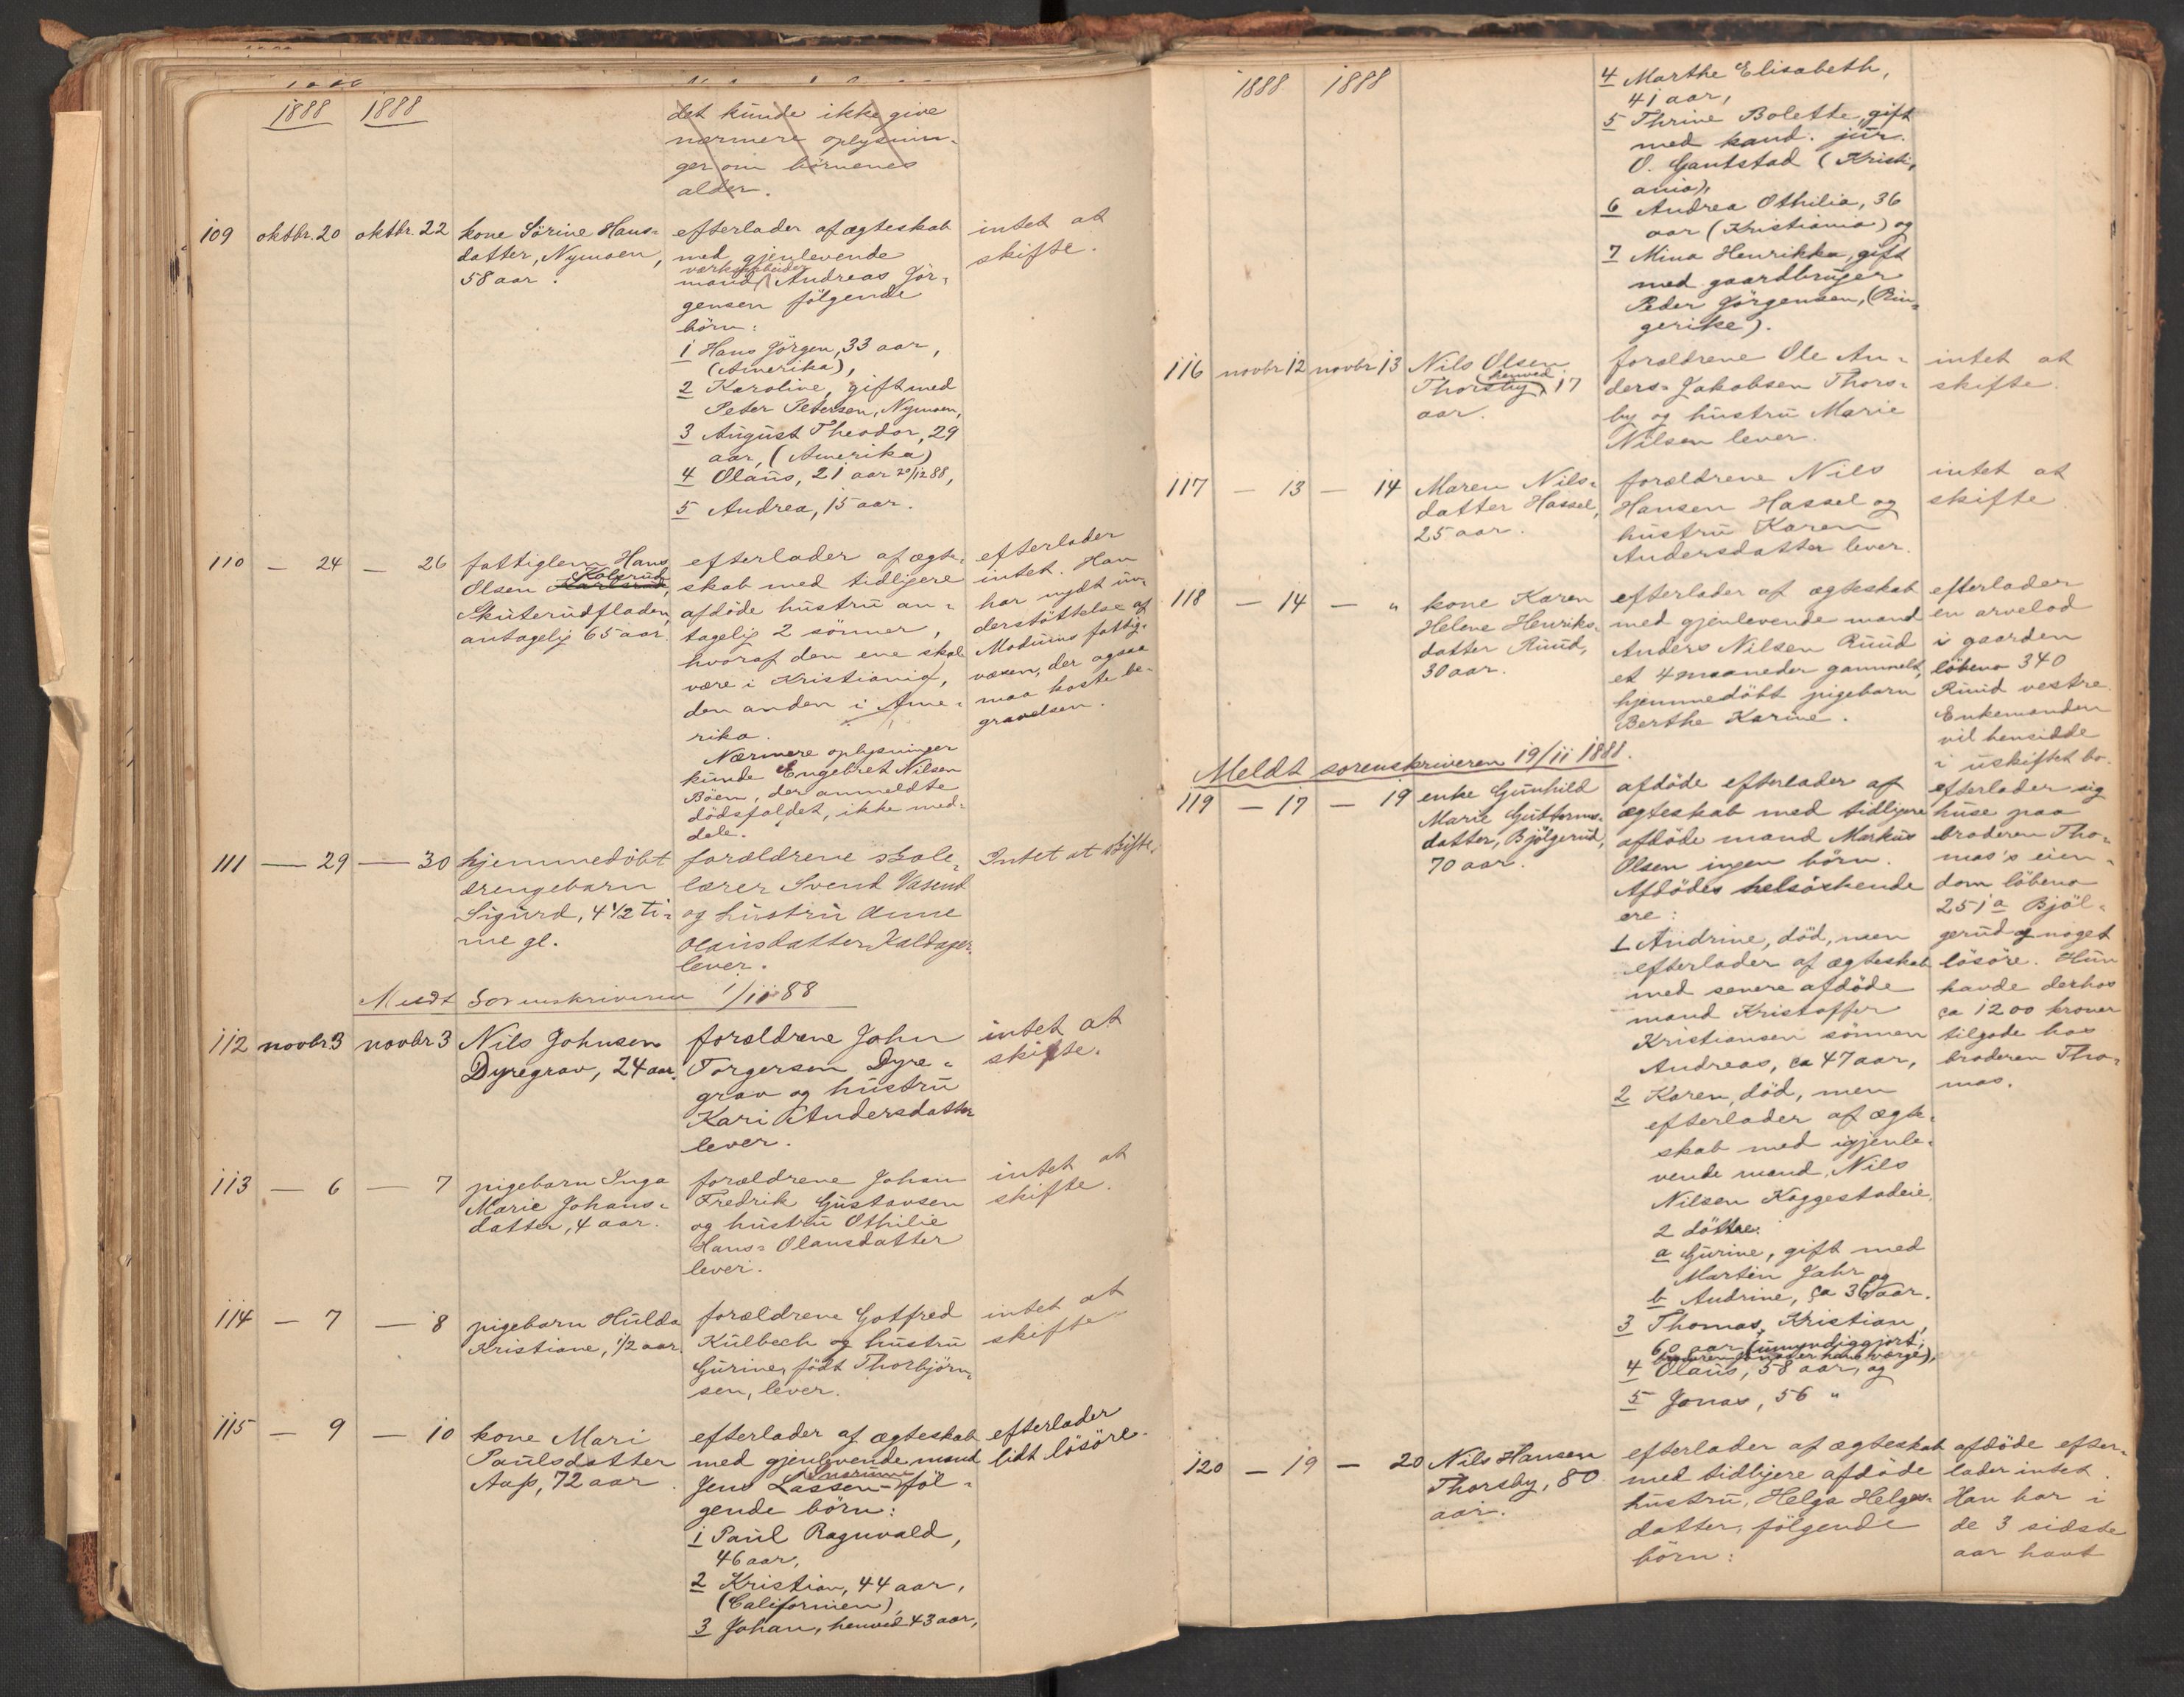 1888 1888
det kunde ikke give
nærmere oplysnin-
ger om börnenes
alder.
109 oktbr. 20 oktbr. 22 kone Sörine Hans-
datter, Nymoen,
58 aar.
efterlader af ægteskab
med gjenlevende
værksarbeider
mand Andreas Jör-
gensen fölgende
börn:
1 Hans Jörgen, 33 aar,
(Amerika),
2 Karoline, gift med
Peter Petersen, Nymoen,
3 August Theodor, 29
aar, (Amerika)
4 Olaus, 21 aar 20/12 88,
5 Andrea, 15 aar.
intet at
skifte.
110 — 24 — 26 fattiglem Hans
Kolsrud
Olsen
Skuterudfladen,
antagelig 65 aar.
efterlader af ægte-
skab med tidligere
afdöde hustru an-
tagelig 2 sönner,
hvoraf den ene skal
være i Kristiania,
den anden i Ame-
rika.
Nærmere oplysninger
kunde Engebret Nilsen
Böen, der anmeldte
dödsfaldet, ikke med-
dele.
efterlader
intet. Han
har nydt un-
derstöttelse af
Modums fattig-
væsen, der ogsaa
maa koste be-
gravelsen.
111 — 29 — 30 hjemmedöbt
drengebarn
Sigurd, 4 1/2 ti-
me gl.
forældrene skole-
lærer Svend Vasend
og hustru Anne
Olausdatter Kaldager
lever.
Intet at skifte.
Meldt Sorenskriveren 1/11 88
112 novbr 3 novbr 3 Nils Johnsen
Dyregrav, 24 aar.
forældrene John
Torgersen Dyre-
grav og hustru
Kari Andersdatter
lever.
intet at
skifte.
113 — 6 — 7 pigebarn Inga
Marie Johans-
datter, 4 aar.
forældrene Johan
Fredrik Gustavsen
og hustru Othilie
Hans- Olausdatter
lever.
intet at
skifte.
114 — 7 — 8 pigebarn Hulda
Kristiane, 1/2 aar.
forældrene Gotfred
Kulbech og hustru
Gurine, födt Thorbjörn-
sen, lever.
intet at
skifte
115 — 9 — 10 kone Mari
Paulsdatter
Aaß, 72 aar.
efterlader af ægteskab
med gjenlevende mand
Snarum
Jens Lassen föl-
gende börn:
1 Paul Ragnvald,
46 aar,
2 Kristian, 44 aar,
(Californien),
3 Johan, henved 43 aar,
efterlader
lidt lösöre.
1888 1888
4 Marthe Elisabeth,
41 aar,
5 Thrine Bolette, gift
med kand. jur.
O. Gantstad (Kristi-
ania),
6 Andrea Othilia, 36
aar (Kristiania) og
7 Mina Henrikka, gift
med gaardbruger
Peder Jörgensen, (Rin-
gerike).
116 novbr 12 novbr 13 Nils Olsen
henved
Thorsby, 17
aar.
forældrene Ole An-
ders- Jakobsen Thors-
by og hustru Marie
Nilsen lever.
intet at
skifte.
117 — 13 — 14 Maren Nils-
datter Hassel,
25 aar.
forældrene Nils
Hansen Hassel og
hustru Karen
Andersdatter lever.
intet at
skifte
118 — 14 — " kone Karen
Helene Henriks-
datter Ruud,
30 aar.
efterlader af ægteskab
med gjenlevende mand
Anders Nilsen Ruud
et 4 maaneder gammelt,
hjemmedöbt pigebarn
Berthe Karine.
efterlader
en arvelod
i gaarden
löbeno 340
Ruud vestre.
Enkemanden
vil hensidde
i uskiftet bo.
Meldt sorenskriveren 19/11 1888.
119 — 17 — 19 enke Gunhild
Marie Guttorms-
datter, Bjölgerud,
70 aar.
afdöde efterlader af
ægteskab med tidligere
afdöde mand Markus
Olsen ingen börn.
Afdödes helsöskende
ere:
1 Andrine, död, men
efterlader af ægteskab
med senere afdöde
mand Kristoffer
Kristiansen sönnen
Andreas, ca 47 aar,
2 Karen, död, men
efterlader af ægte-
skab med igjenle-
vende mand, Nils
Nilsen Kaggestadeie,
2 döttre:
a Gurine, gift med
Martin Jahr og
b Andrine, ca 36 aar.
3 Thomas Kristian,
60 aar (umyndiggjort;
broderen Jonas er hans værge),
4 Olaus, 58 aar, og
5 Jonas, 56 "
efterlader sig
huse paa
broderen Tho-
mas's eien-
dom löbeno
251a Bjöl-
gerud og noget
lösöre. Hun
havde derhos
ca 1200 kroner
tilgode hos
broderen Tho-
mas.
120 — 19 — 20 Nils Hansen
Thorsby, 80
aar.
efterlader af ægteskab
med tidligere afdöde
hustru, Helga Helges-
datter, fölgende
börn:
afdöde efter-
lader intet.
Han har i
de 3 sidste
aar havt